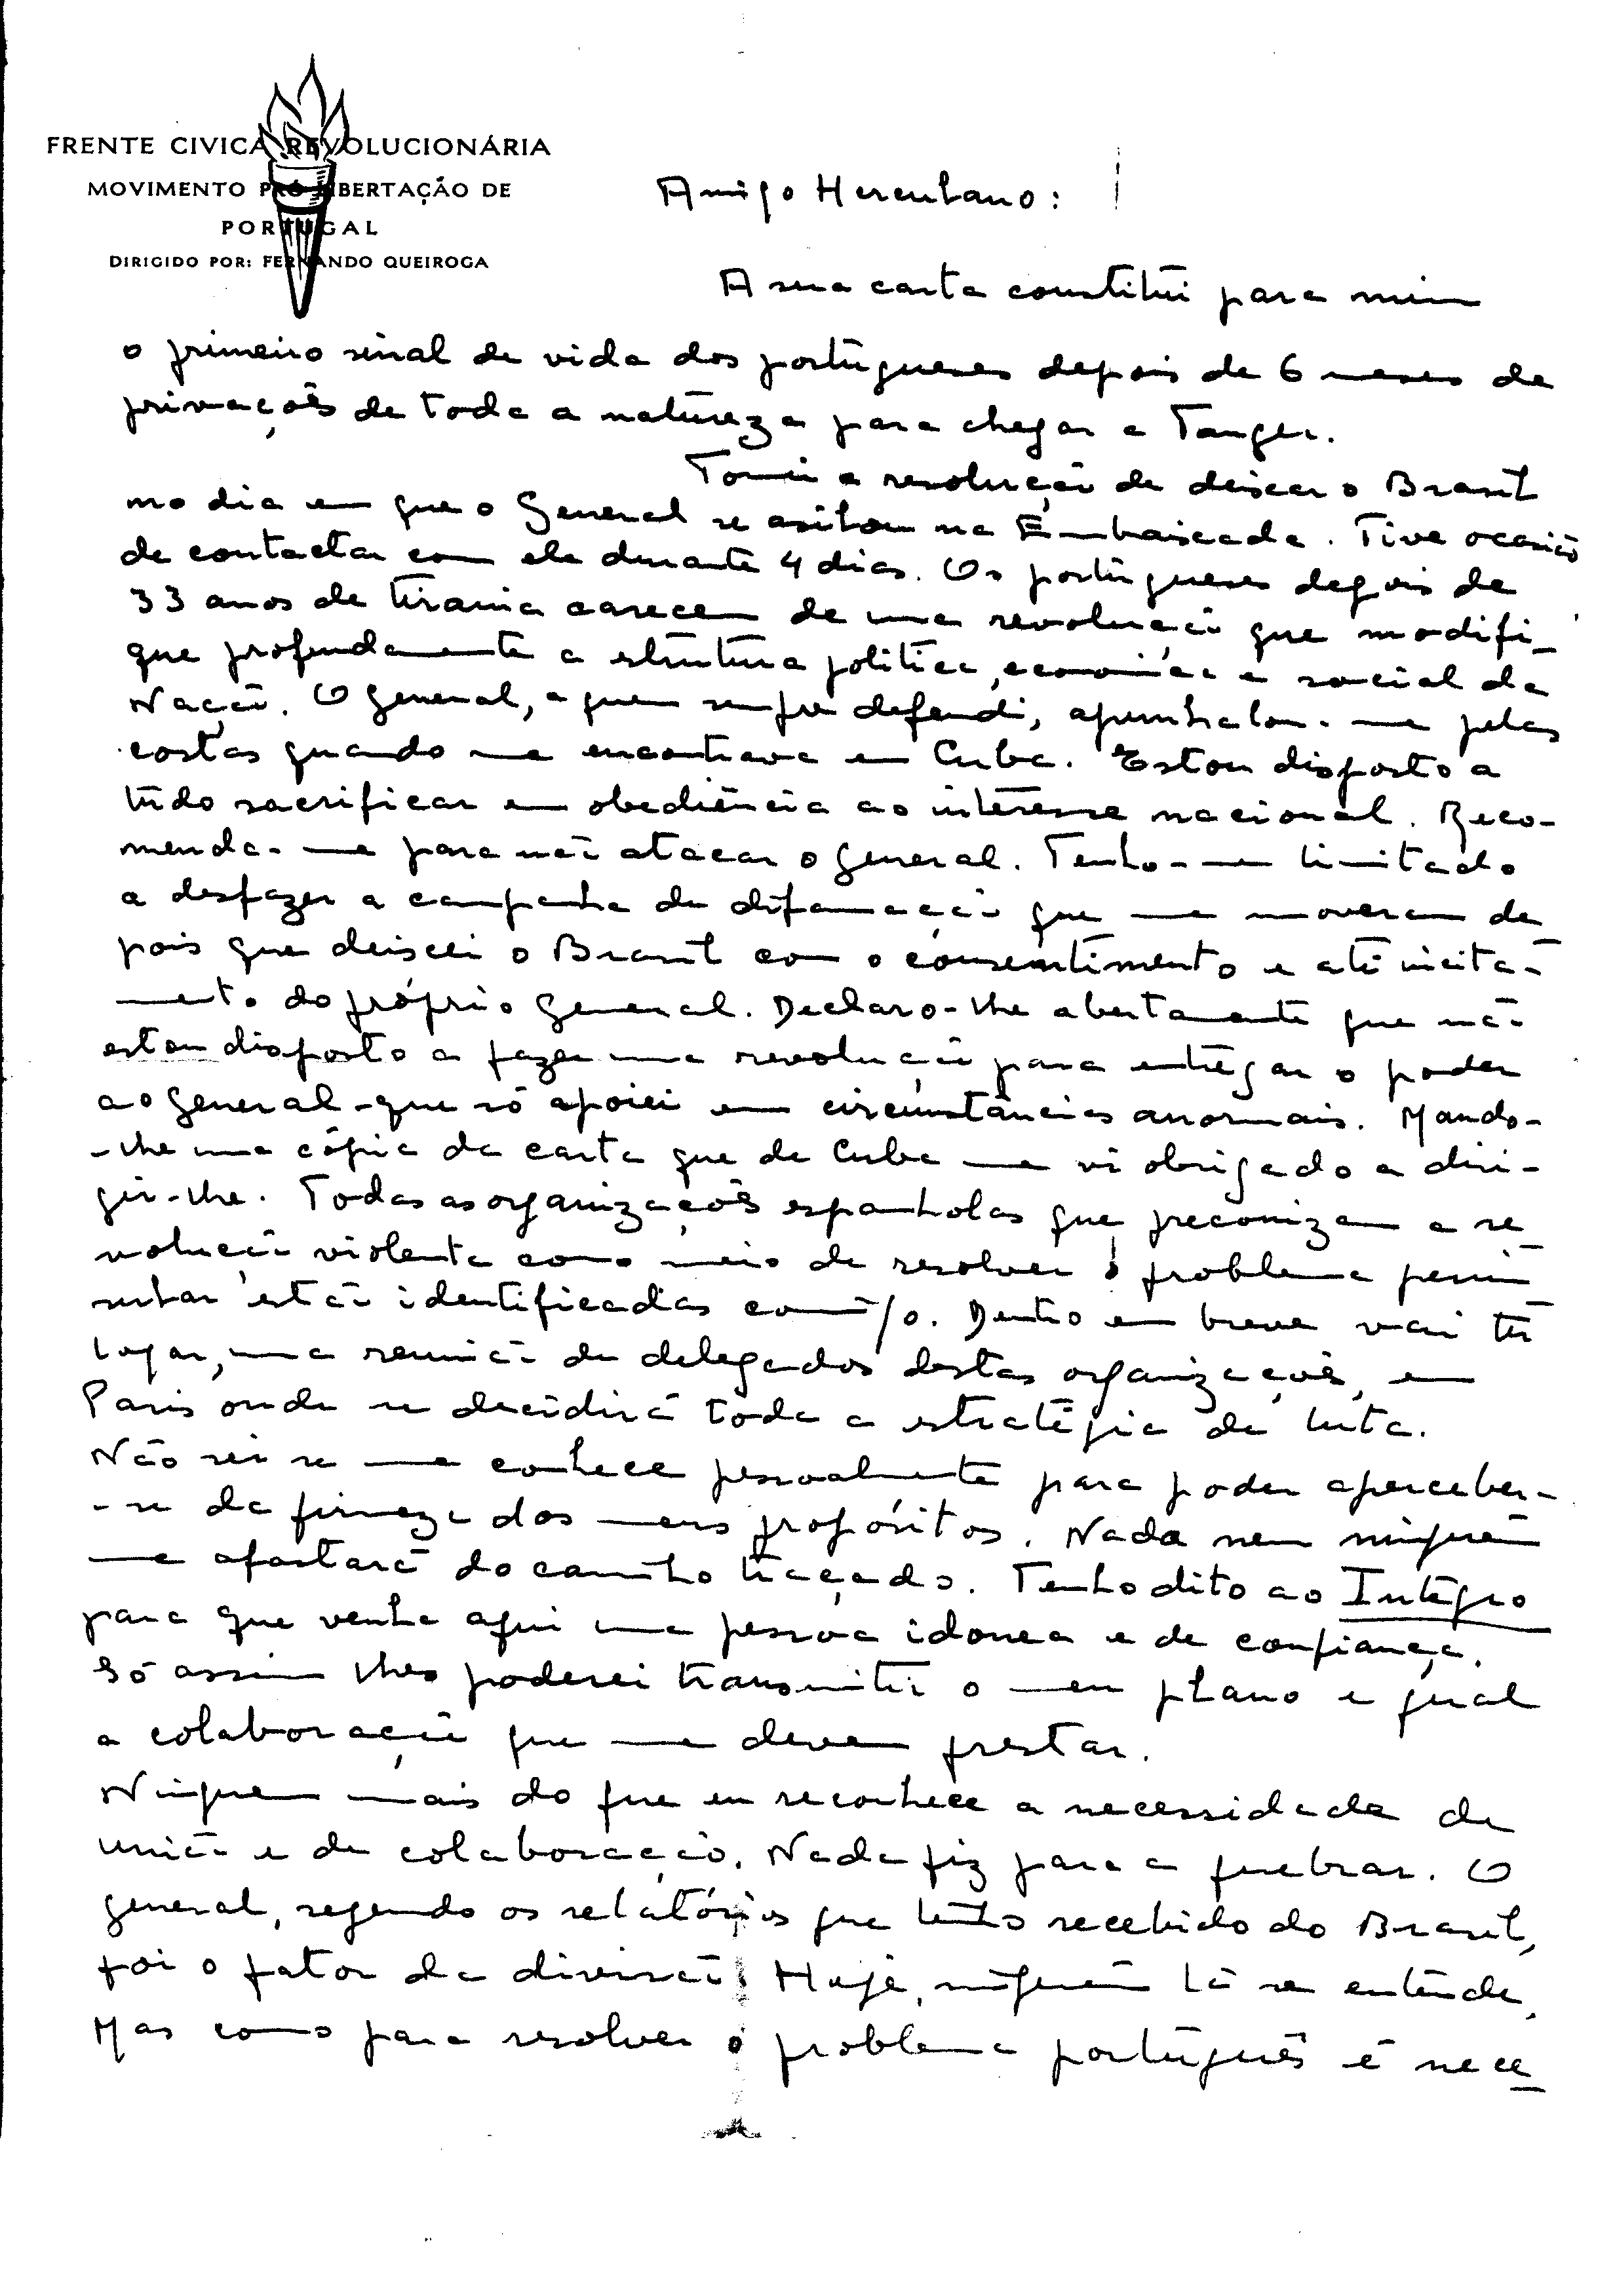 FRENTE CIVICA REVOLUCIONÁRIA
MOVIMENTO PRÓ LIBERTAÇÃO DE
PORTUGAL
DIRIGIDO POR: FERNANDO QUEIROGA
Amigo Herculano:
A sua carta constitui para mim
o primeiro sinal de vida dos portugueses depois de 6 meses de
privações de toda a natureza para chegar a Tanger.
Tomei a resolução de deixar o Brasil
no dia em que o General se asilou na Embaixada. Tive ocasião
de contactar com ele durante 4 dias. Os portugueses depois de
33 anos de tirania carecem de uma revolução que modifi-
que profundamente a estrutura politica, economica e social da
Nação. O general, a quem sempre defendi, apunhalou-me pelas
costas quando me encontrava em Cuba. Estou disposto a
tudo sacrificar em obediência ao interesse nacional. Reco-
menda-me para não atacar o general. Tenho-me limitado
a desfazer a campanha de difamação que me moveram de
pois que deixei o Brasil com o consentimento e até incita-
mento do próprio General. Declaro-lhe abertamente que não
estou disposto a fazer uma revolução para entregar o poder
ao general - que só apoiei em circunstâncias anormais. Mando-
-lhe uma cópia da carta que de Cuba me vi obrigado a diri-
gir-lhe. Todas as organizações espanholas que preconizam a re
volução violenta como meio de resolver o problema penin
sular estão identificadas comigo. Dentro em breve vai ter
lugar, uma reunião de delegados destas organizações, em
Paris onde se decidirá toda a estratégia da luta.
Não sei se me conhece pessoalmente para poder aperceber-
-se da firmeza dos meus propósitos. Nada nem ninguém
me afastará do caminho traçado. Tenho dito ao Integro
para que venha aqui uma pessoa idonea e de confiança.
Só assim lhes poderei transmitir o meu plano e qual
a colaboração que me devem prestar.
Ninguem mais do que eu reconhece a necessidade de
união e de colaboração. Nada fiz para a quebrar. O
general, segundo os relatórios que tenho recebido do Brasil,
foi o fator da divisão. Hoje, ninguém lá se entende.
Mas como para resolver o problema português é nece